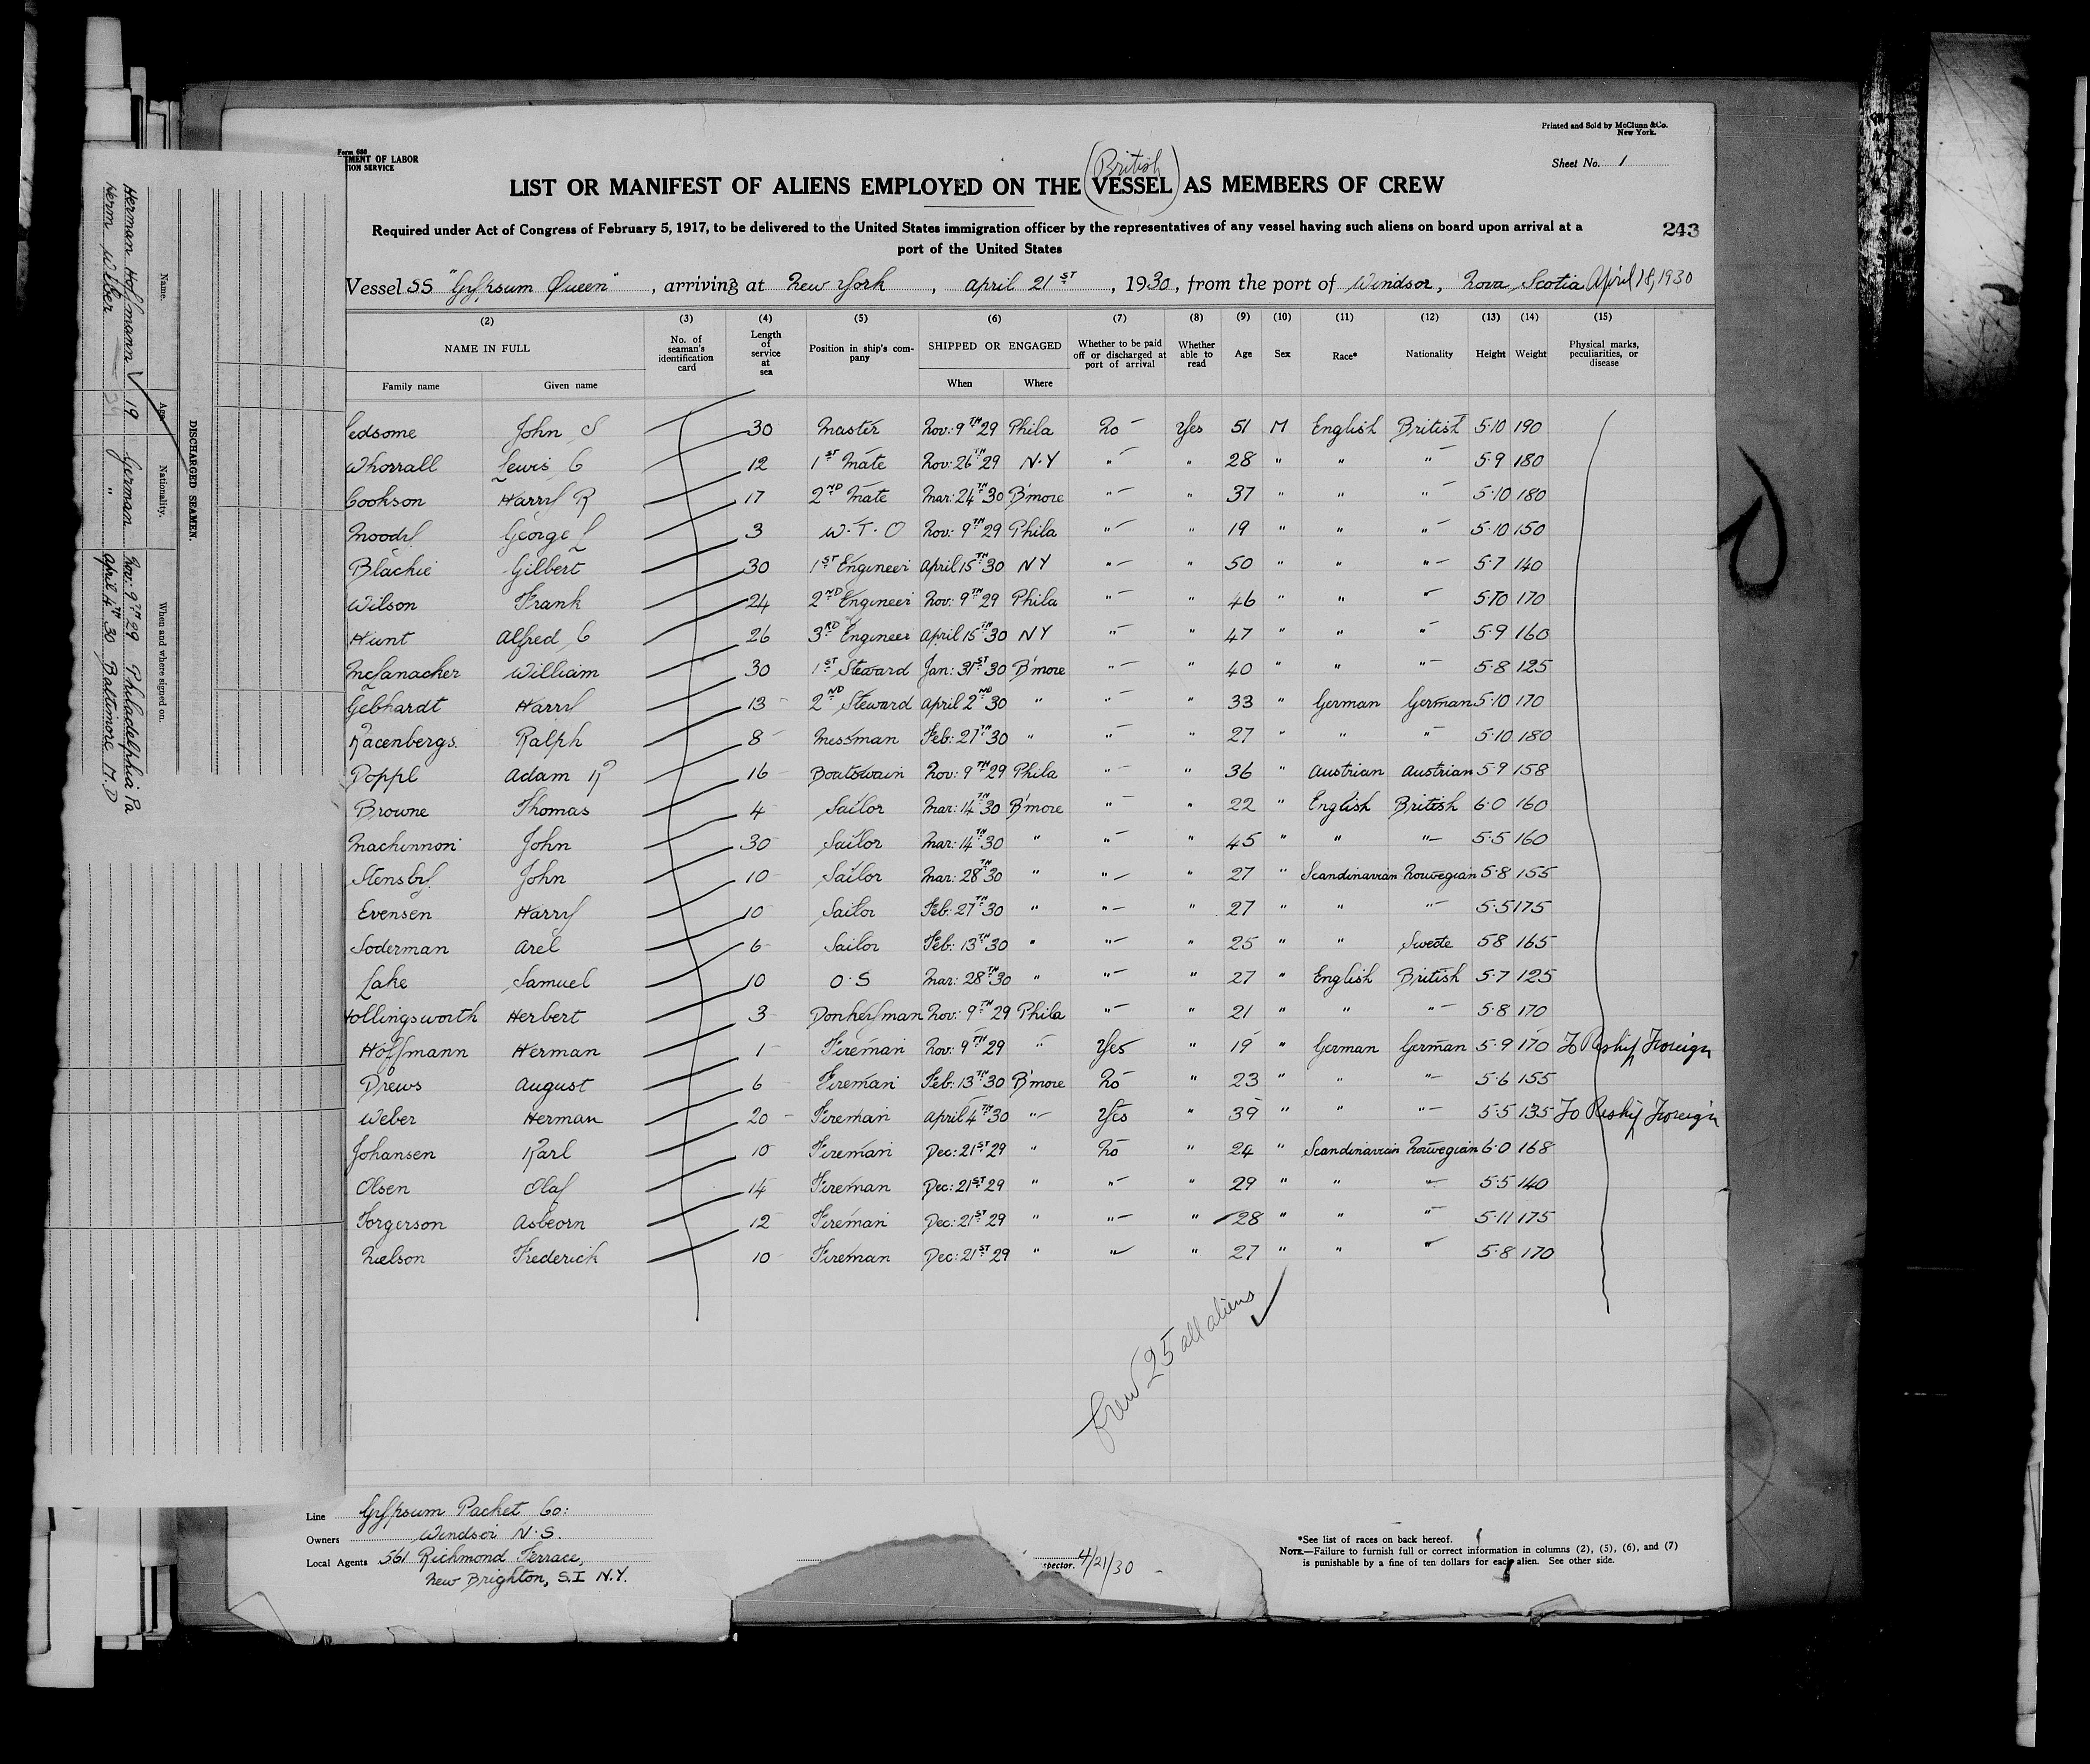 Printed and Sold by McClunn & Co.
New York.
Form 680
MENT OF LABOR
ION SERVICE
Sheet No. 1
(British)
LIST OR MANIFEST OF ALIENS EMPLOYED ON THE VESSEL AS MEMBERS OF CREW
Required under Act of Congress of February 5, 1917, to be delivered to the United States immigration officer by the representatives of any vessel having such aliens on board upon arrival at a
port of the United States
243
Vessel SS "Gypsum Queen", arriving at New York, April 21ST, 1930, from the port of Windsor, Nova Scotia April 18, 1930
(2) (3) (4) (5) (6) (7) (8) (9) (10) (11) (12) (13) (14) (15)
NAME IN FULL No. of seaman's identification card Length of service at sea Position in ship's company SHIPPED OR ENGAGED Whether to be paid off or discharged at port of arrival Whether able to read Age Sex Race* Nationality Height Weight Physical marks, peculiarities, or disease
Family name Given name When Where
edsome John S 30 Master Nov: 9TH 29 Phila No Yes 51 M English British 5·10 190
Whorrall Lewis C 12 1ST Mate Nov: 26TH 29 N·Y " " 28 " " " 5·9 180
Cookson Harry R 17 2ND Mate Mar: 24TH 30 B'more " " 37 " " " 5·10 180
Moody George L 3 W·T·O Nov: 9TH 29 Phila " " 19 " " " 5·10 150
Blackie Gilbert 30 1ST Engineer April 15TH 30 NY " " 50 " " " 5·7 140
Wilson Frank 24 2ND Engineer Nov: 9TH 29 Phila " " 46 " " " 5·10 170
Hunt Alfred C 26 3RD Engineer April 15TH 30 NY " " 47 " " " 5·9 160
McLanacher William 30 1ST Steward Jan: 31ST 30 B'more " " 40 " " " 5·8 125
Gebhardt Harry 13 2ND Steward April 2ND 30 " " " 33 " German German 5·10 170
Kacenbergs Ralph 8 Messman Feb: 27TH 30 " " " 27 " " " 5·10 180
Poppl Adam K 16 Boatswain Nov: 9TH 29 Phila " " 36 " Austrian Austrian 5·9 158
Browne Thomas 4 Sailor Mar: 14TH 30 B'more " " 22 " English British 6·0 160
Mackinnon John 30 Sailor Mar: 14TH 30 " " " 45 " " " 5·5 160
Stensby John 10 Sailor Mar: 28TH 30 " " " 27 " Scandinavian Norwegian 5·8 155
Evensen Harry 10 Sailor Feb: 27TH 30 " " " 27 " " " 5·5 175
Soderman Axel 6 Sailor Feb: 13TH 30 " " " 25 " " Swede 58 165
Lake Samuel 10 O·S Mar: 28TH 30 " " " 27 " English British 5·7 125
Hollingsworth Herbert 3 Donkeyman Nov: 9TH 29 Phila " " 21 " " " 5·8 170
Hoffmann Herman 1 Fireman Nov: 9TH 29 " Yes " 19 " German German 5·9 170 To Reship Foreign
Drews August 6 Fireman Feb: 13TH 30 B'more No " 23 " " " 5·6 155
Weber Herman 20 Fireman April 4TH 30 " Yes " 39 " " " 5·5 135 To Reship Foreign
Johansen Karl 10 Fireman Dec: 21ST 29 " No " 24 " Scandinavian Norwegian 6·0 168
Olsen Olaf 14 Fireman Dec: 21ST 29 " " " 29 " " " 5·5 140
Torgerson Asbeorn 12 Fireman Dec: 21ST 29 " " " 28 " " " 5·11 175
Nielson Frederick 10 Fireman Dec: 21ST 29 " " " 27 " " " 5·8 170
Crew 25 all aliens
Line Gypsum Packet Co:
Owners Windsor N.S.
Local Agents 561 Richmond Terrace,
New Brighton, S.I N.Y.
spector. 4/21/30
*See list of races on back hereof.
NOTE.—Failure to furnish full or correct information in columns (2), (5), (6), and (7)
is punishable by a fine of ten dollars for each alien. See other side.
DISCHARGED SEAMEN.
Name. Age. Nationality. When and where signed on.
Herman Hoffmann 19 German Nov: 9TH 29 Philadelphia Pa
Herm Weber 39 " April 4TH 30 Baltimore M.D